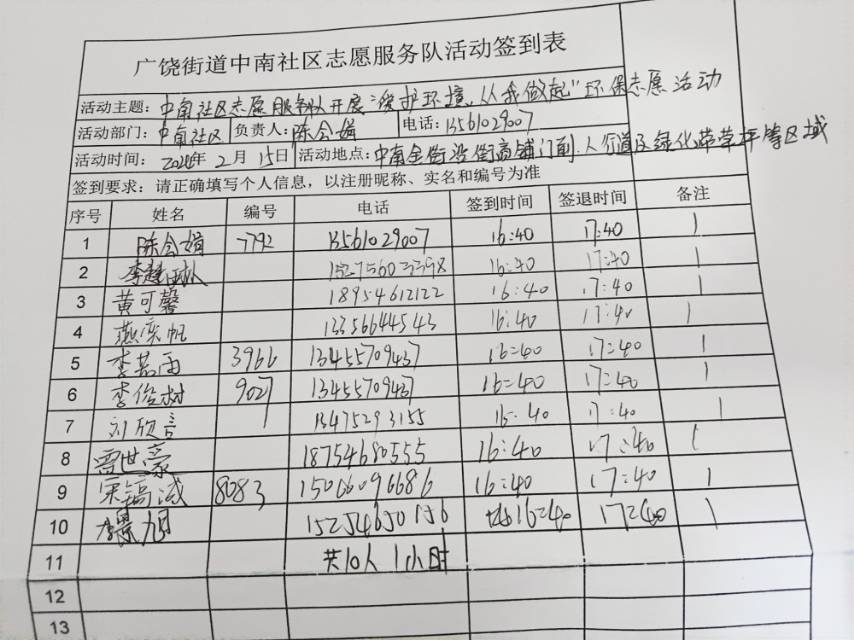 广饶街道中南社区志愿服务队活动签到表
活动主题：中南社区志愿服务队开展“爱护环境，从我做起”环保志愿活动
活动部门：中南社区 负责人：陈会娟 电话：13561029007
活动时间：年 2月 15日 活动地点：中南金街沿街商铺门前、人行道及绿化带草坪等区域
签到要求：请正确填写个人信息，以注册昵称、实名和编号为准
序号 姓名 编号 电话 签到时间 签退时间 备注
1 陈会娟 7792 13561029007 16:40 17:40 1
2 16:40 17:40 1
3 黄可馨 18954612122 16:40 17:40 1
4 燕奕帆 13356644543 16:40 17:40 1
5 李若雨 3966 13455709437 16:40 17:40 1
6 李俊树 9027 13455709437 16:40 17:40 1
7 刘欣言 13475293155 16:40 17:40 1
8 贾世豪 18754680555 16:40 17:40 1
9 宋镐诚 8083 15066096686 16:40 17:40 1
10 15254650156 16:40 17:40 1
11 共10人 1小时
12
13